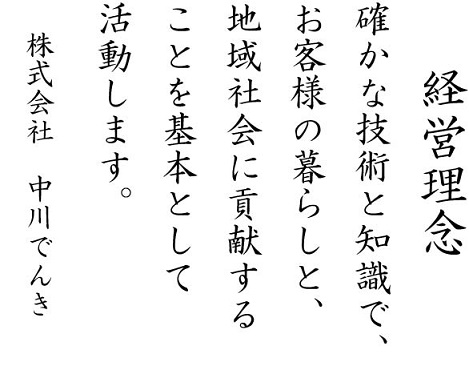 経営理念
確かな技術と知識で、
お客様の暮らしと、
地域社会に貢献する
ことを基本として
活動します。
株式会社　中川でんき